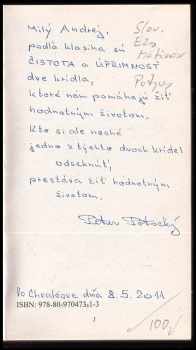 Milý Andrej,
podľa klasika sú
ČISTOTA a ÚPRIMNOSŤ
dve krídla,
ktoré nám pomáhajú žiť
hodnotným životom.
Kto si ale nechá
jedno z týchto dvoch krídel
odseknúť,
prestáva žiť hodnotným
životom.
Peter Potocký
dňa 8.5.2011
ISBN: 978-80-970473-1-3
Slov.
100,-